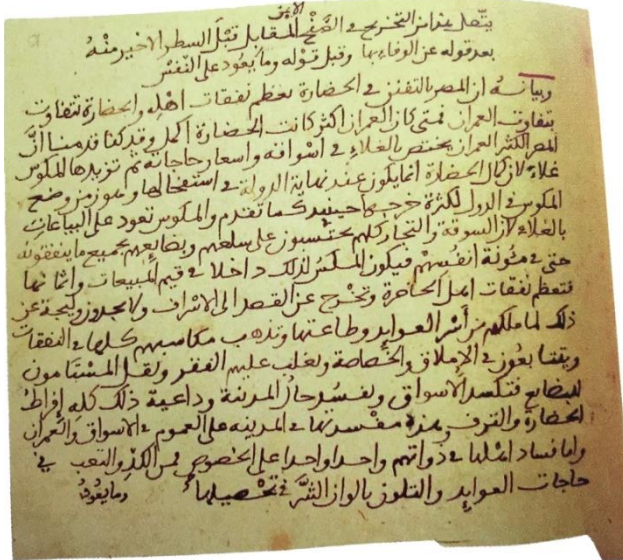 الايمن
يتصل بهذا من التخريج في الصفح المقابل قبل السطر الاخير منه
بعد قوله عن الوفاء بها وقبل قوله وما يعود على النفس
وبيانه ان المصر بالتفنن في الحضارة يعظم نفقات اهله والحضارة تتفاوت
بتفاوت العمران فمتى كان العمران اكثر كانت الحضارة اكمل وقد كنا قدمنا ان
المصر الكثير العمران يختص بالغلاء في اسواقه واسعار حاجاته ثم تزيدها المكوس
غلاء لان كمال الحضارة انما يكون عند نهاية الدولة في استفحالها وهو زمن وضع
المكوس في الدول لكثرة خرجها حينيذ كما تقدم والمكوس تعود على البياعات
بالغلاء لان السوقة والتجار كلهم يحتسبون على سلعهم وبضايعهم بجميع ما ينفقونه
حتى في مئونة انفسهم فيكون المكس لذلك داخلا في قيم المبيعات واثمانها
فتعظم نفقات اهل الحاضرة وتخرج عن القصد الى الاسراف ولا يجدون وليجة عن
ذلك لما ملكهم من أسر العوايد وطاعتها وتذهب مكاسبهم كلها في النفقات
ويتتابعون في الإملاق والخصاصة ويغلب عليهم الفقر ويقل المستامون
للبضايع فتكسد الاسواق ويفسد حال المدينة وداعية ذلك كله إفراط
الحضارة والترف وهذه مفسدتها في المدينه على العموم في الاسواق والعمران
واما فساد اهلها في ذواتهم واحدا واحدا على الخصوص فمن الكد والتعب في
حاجات العوايد والتلون بالوان الشر في تحصيلها
وما يعود